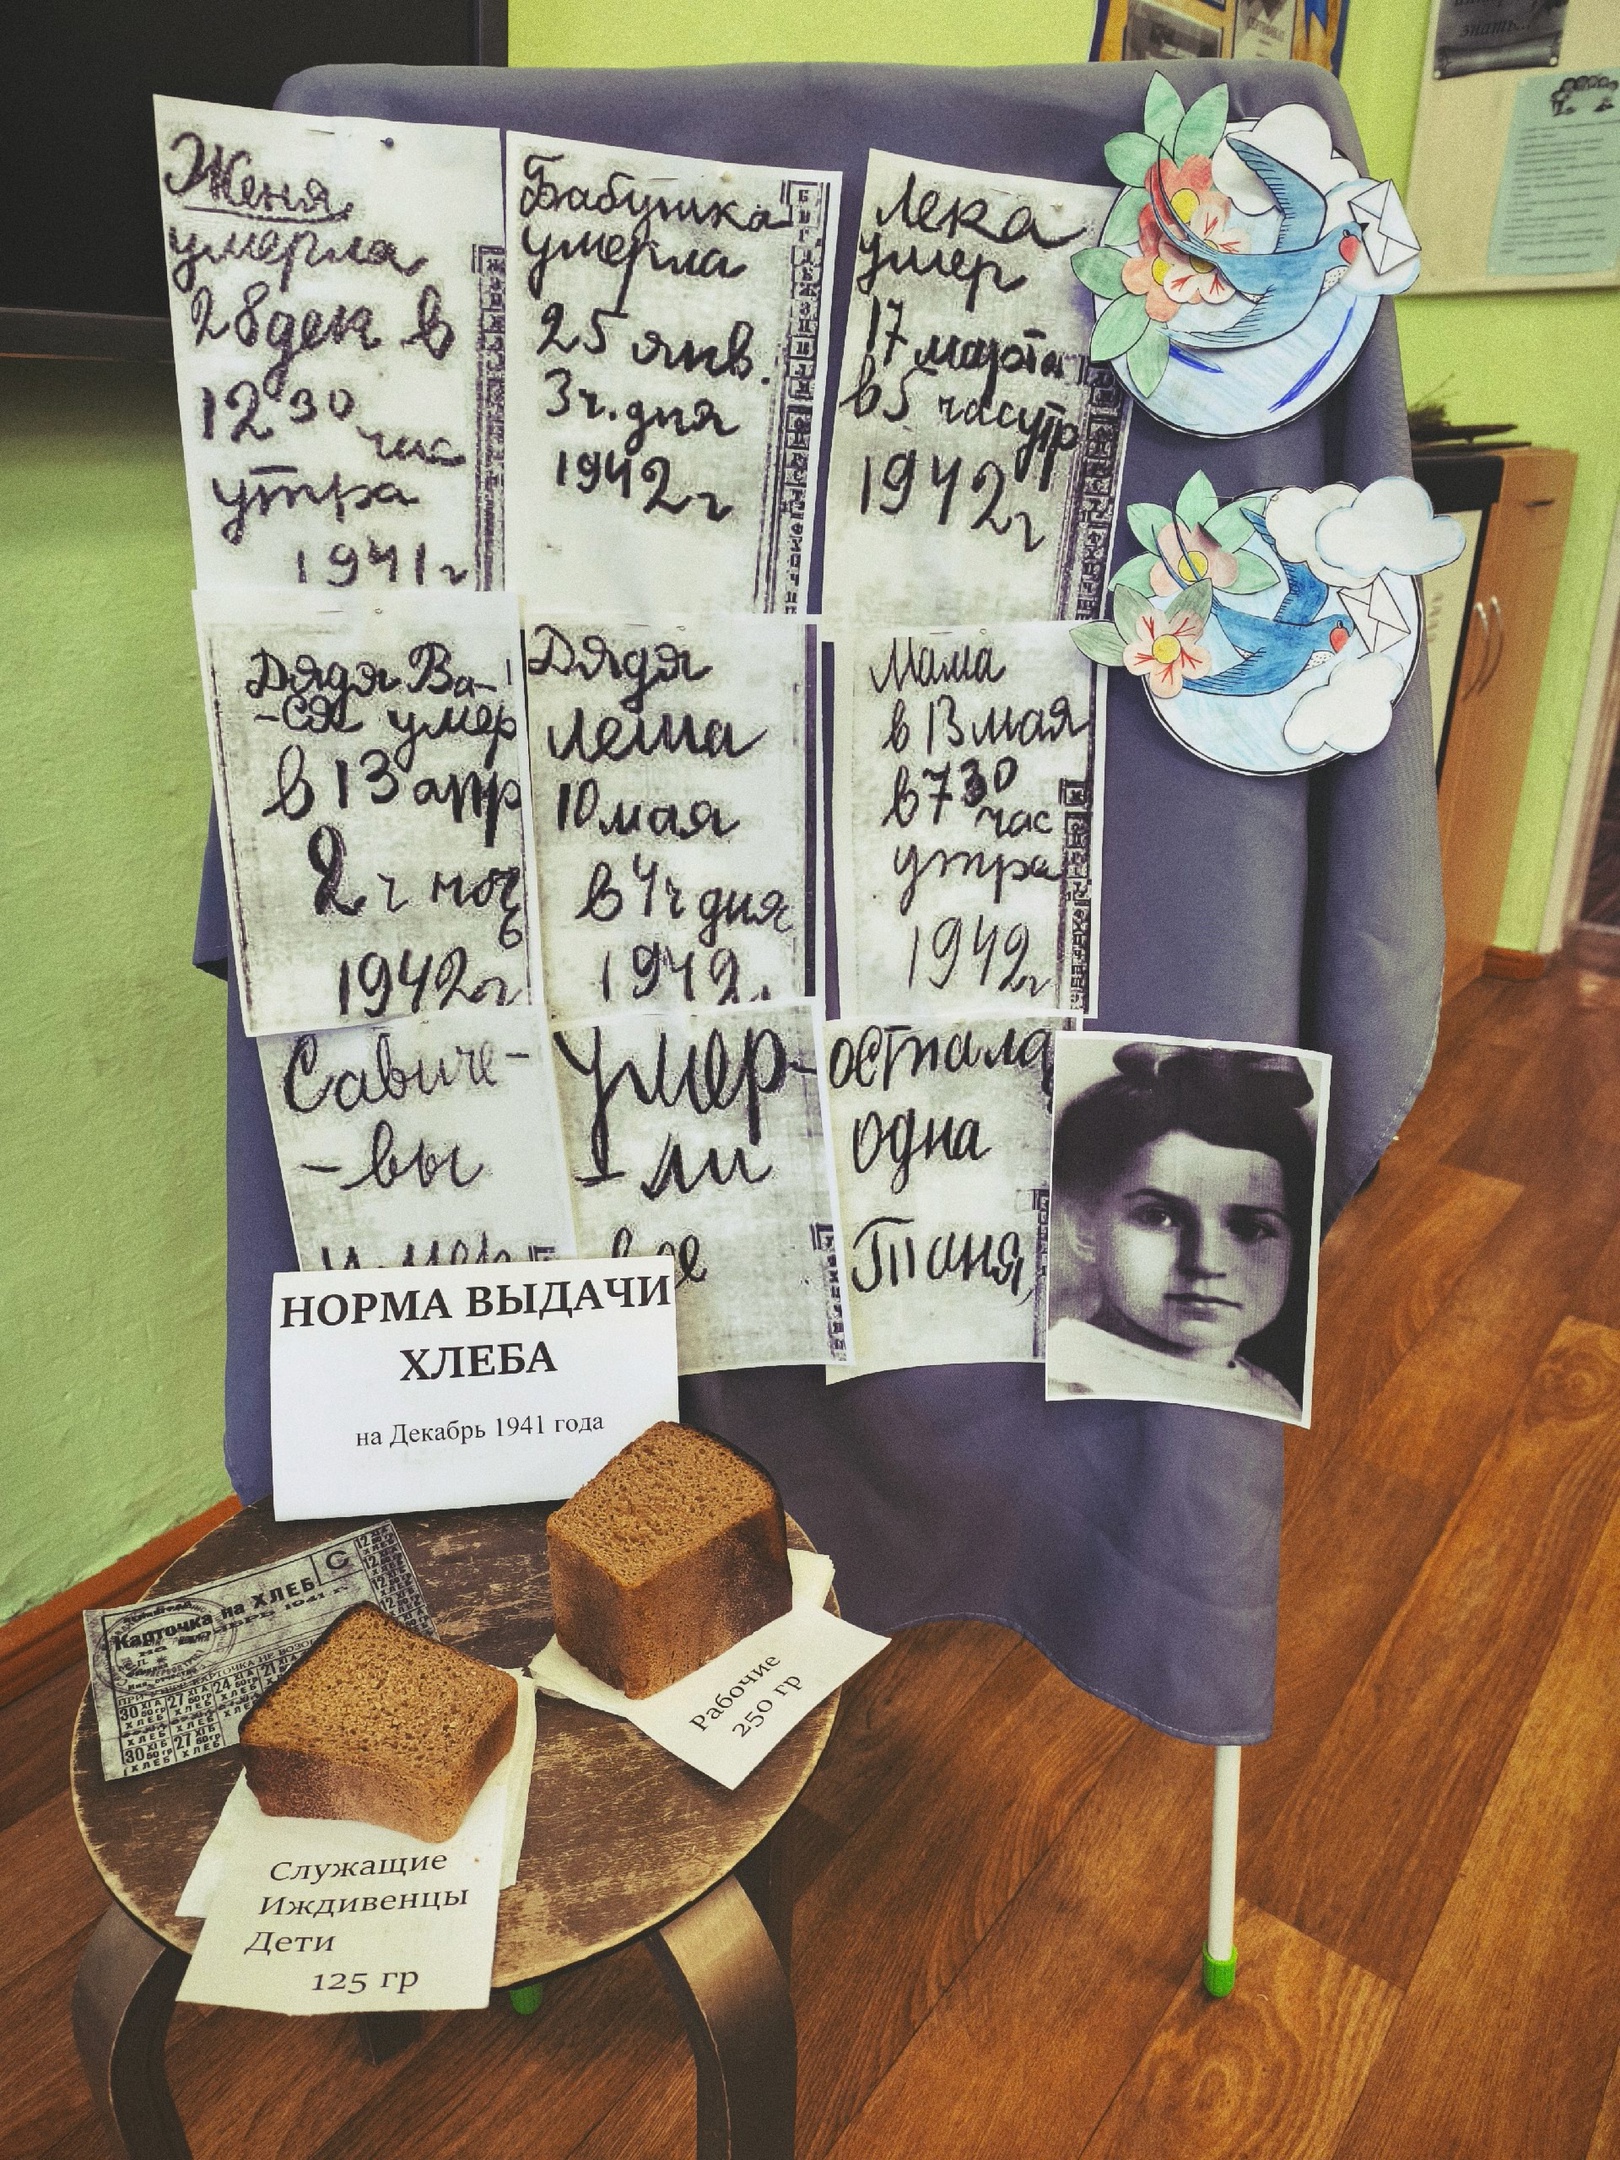 Женя
умерла
28 дек в
12 30 час
утра
1941 г
Бабушка
умерла
25 янв.
3 ч. дня
1942 г
Лека
умер
17 марта
в 5 час утр
1942 г
Дядя Ва-
-ся умер
в 13 апр
2 ч ноч
ь
1942 г
Дядя
Леша
10 мая
в 4 ч дня
1942 г
Мама
в 13 мая
в 7 30
час
утра
1942 г
Савиче-
-вы
умер
Умер-
-ли
все
остала
одна
Таня
НОРМА ВЫДАЧИ
ХЛЕБА
на Декабрь 1941 года
Карточка на ХЛЕБ С
Рабочие
250 гр
Служащие
Иждивенцы
Дети
125 гр
знать...